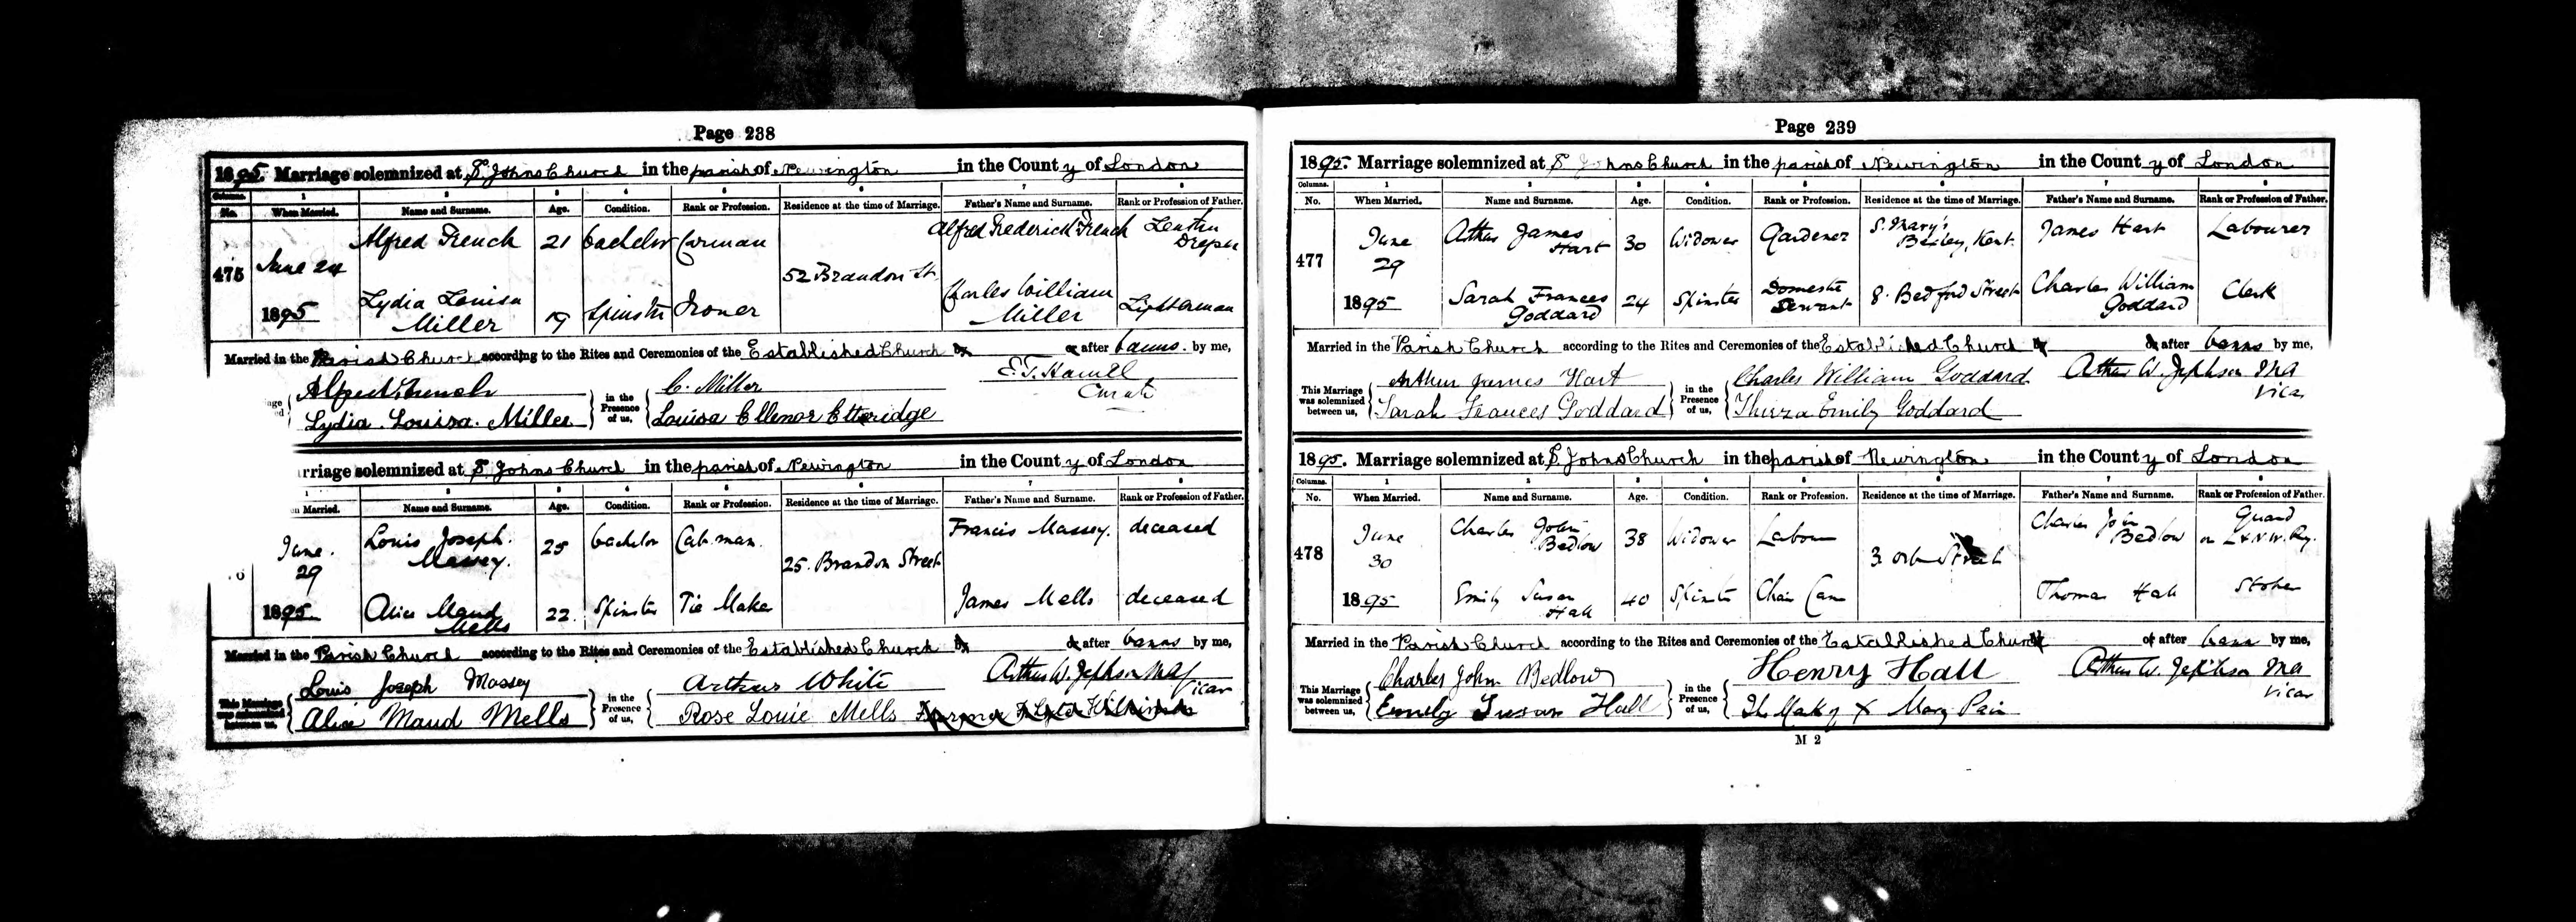 Page 238
1895. Marriage solemnized at St. Johns Church in the parish of Newington in the County of London
Columns. 1 2 3 4 5 6 7 8
No. When Married. Name and Surname. Age. Condition. Rank or Profession. Residence at the time of Marriage. Father's Name and Surname. Rank or Profession of Father.
475 June 24 1895
Alfred French 21 bachelor Carman 52 Brandon St. Alfred Frederick French Leather Dresser
Lydia Louisa Miller 19 Spinster Ironer Charles William Miller Lighterman
Married in the Parish Church according to the Rites and Ceremonies of the Established Church by or after banns. by me,
Alfred French in the Presence of us, C. Miller E.T. Curate
Lydia Louisa Miller Louisa Ellenor Etteridge
rriage solemnized at St. Johns Church in the parish of Newington in the County of London
n Married. Name and Surname. Age. Condition. Rank or Profession. Residence at the time of Marriage. Father's Name and Surname. Rank or Profession of Father.
June. 29 1895
Louis Joseph. Massey. 25 bachelor Cab man. 25. Brandon Street Francis Massey. deceased
Alice Maud Mells 22. Spinster Tie Maker James Mells deceased
Married in the Parish Church according to the Rites and Ceremonies of the Established Church by or after banns by me,
This Marriage was solemnized between us, Louis Joseph Massey in the Presence of us, Arthur White Arthur W. Jephson MA Vicar
Alice Maud Mells Rose Louie Mells
Page 239
1895. Marriage solemnized at St Johns Church in the parish of Newington in the County of London
Columns. 1 2 3 4 5 6 7 8
No. When Married. Name and Surname. Age. Condition. Rank or Profession. Residence at the time of Marriage. Father's Name and Surname. Rank or Profession of Father.
477 June 29 1895
Arthur James Hart 30 Widower Gardener S. Mary's Bexley, Kent. James Hart Labourer
Sarah Frances Goddard 24 Spinster Domestic Servant 8. Bedford Street Charles William Goddard Clerk
Married in the Parish Church according to the Rites and Ceremonies of the Established Church by or after banns by me,
This Marriage was solemnized between us, Arthur James Hart in the Presence of us, Charles William Goddard Arthur W. Jephson MA Vicar
Sarah Frances Goddard Thirza Emily Goddard
1895. Marriage solemnized at St Johns Church in the parish of Newington in the County of London
Columns. 1 2 3 4 5 6 7 8
No. When Married. Name and Surname. Age. Condition. Rank or Profession. Residence at the time of Marriage. Father's Name and Surname. Rank or Profession of Father.
478 June 30 1895
Charles John Bedlow 38 Widower Labour 3 Orb Street Charles John Bedlow Guard on L & N.W. Ry.
Emily Susan Hall 40 Spinster Chair Cane Thomas Hall Stoker
Married in the Parish Church according to the Rites and Ceremonies of the Established Church or after banns by me,
This Marriage was solemnized between us, Charles John Bedlow in the Presence of us, Henry Hall Arthur W. Jephson MA Vicar
Emily Susan Hall The Mark of X Mary Pain
M 2